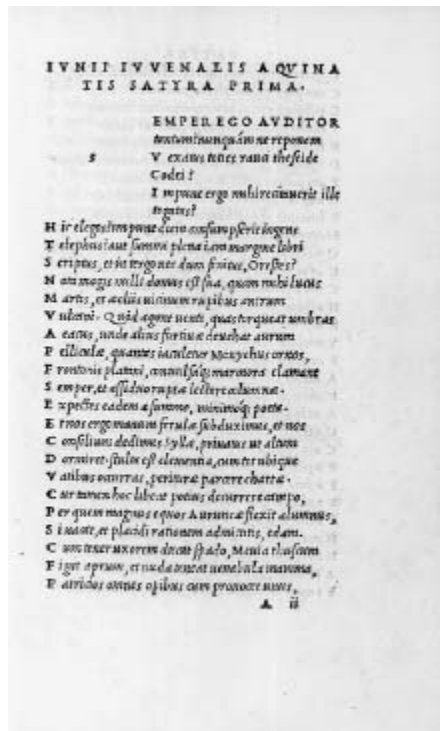 IVNII IVVENALIS AQVINA
TIS SATYRA PRIMA.
EMPER EGO AVDITOR
tantum? nunquám ne reponam
S
V exatus toties rauci theseide
Codri?
I mpune ergo mihi recitauerit ille
togatas?
H ic elegos? impune diem consumpserit ingens
T elephus? aut summi plena iam margine libri
S criptus, et in tergo nec dum finitus, Orestes?
N ota magis nulli domus est sua, quam mihi lucus
M artis, et aeoliis uicinum rupibus antrum
V ulcani. Quid agant uenti, quas torqueat umbras
A eacus, unde alius furtiuae deuehat aurum
P elliculae, quantas iaculetur Monychus ornos,
F rontonis platani, conuulsaq; marmora clamant
S emper, et assiduo ruptae lectore columnae.
E xpectes eadem a summo, minimoq; poeta.
E t nos ergo manum ferulae subduximus, et nos
C onsilium dedimus Syllae, priuatus ut altum
D ormiret. stulta est clementia, cum tot ubique
V atibus occurras, periturae parcere chartae.
C ur tamen hoc libeat potius decurrere campo,
P er quem magnus equos Auruncae flexit alumnus,
S i uacat, et placidi rationem admittitis, edam.
C um tener uxorem ducat spado, Meuia thuscum
F igat aprum, et nuda teneat uenabula mamma,
P atricios omnes opibus cum prouocet unus,
A ii